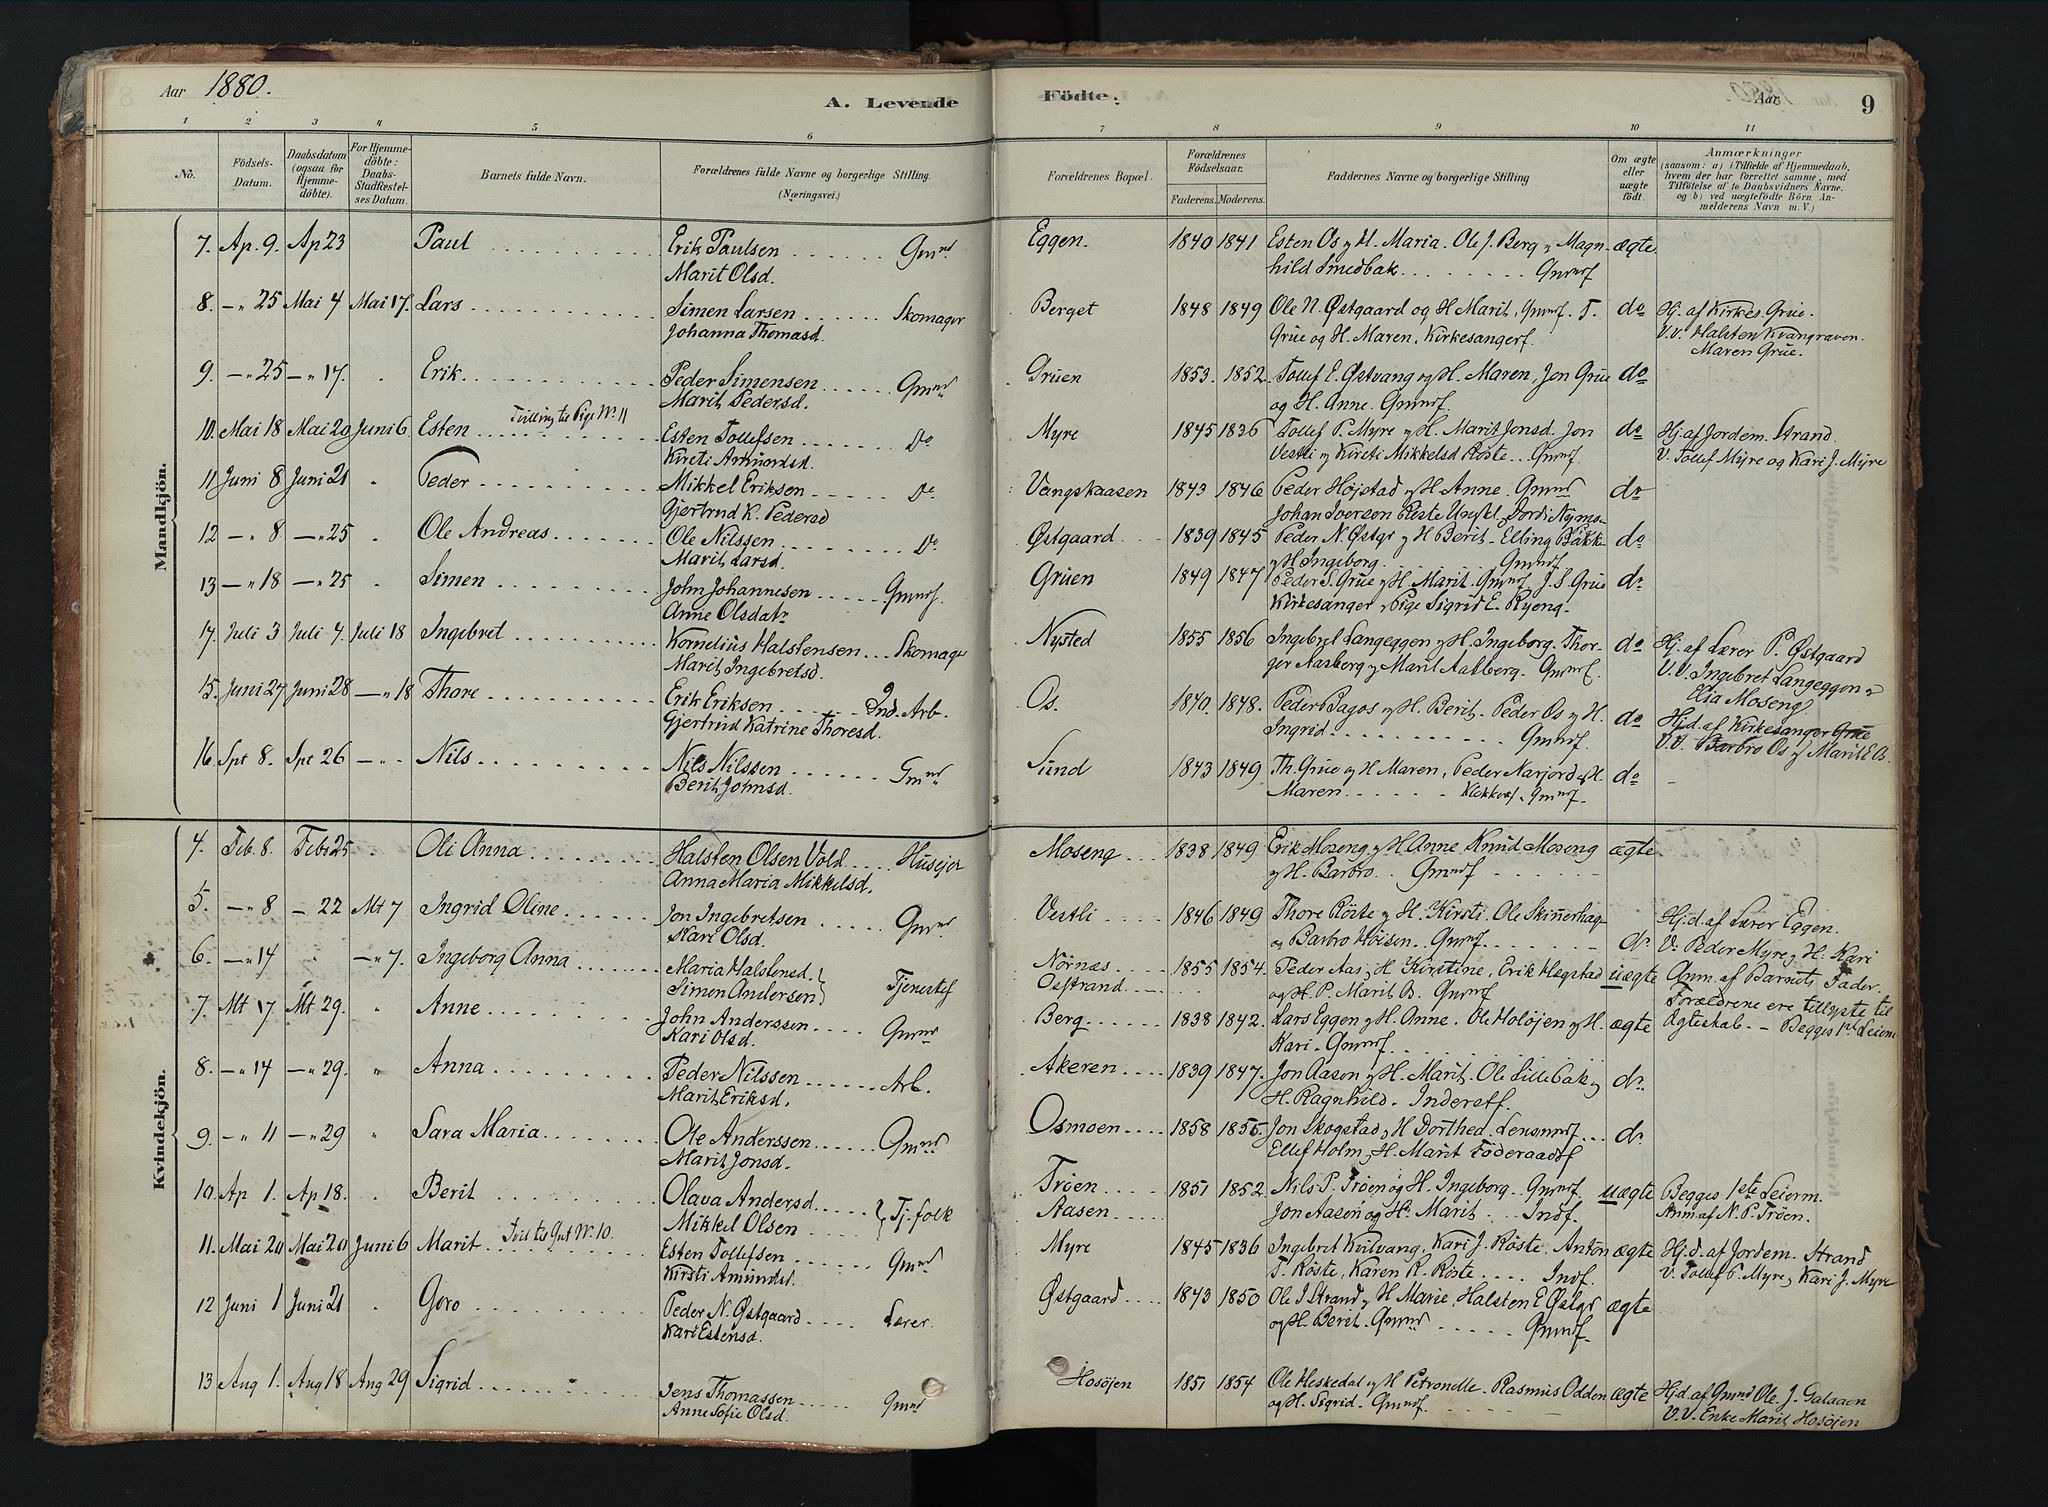 Aar 1880.
A. Levende
Födte.
Aar
9
1 2 3 4 5 6 7 8 9 10 11
No.
Födsels-Datum.
Daabsdatum (ogsaa for Hjemmedöbte).
For Hjemmedöbte: Daabs-Stadfæstelses Datum.
Barnets fulde Navn.
Forældrenes fulde Navne og borgerlige Stilling. (Næringsvei.)
Forældrenes Bopæl.
Forældrenes Födselsaar.
Faderens. Moderens.
Faddernes Navne og borgerlige Stilling
Om ægte eller uægte födt.
Anmærkninger
(saasom: a) i Tilfælde af Hjemmedaab, hvem der har forrettet samme, med Tilföielse af to Daabsvidners Navne. og b) ved uægtefödte Börn Anmelderens Navn m. V.)
Mandkjön.
7. Ap. 9. Ap 23 Paul Erik Paulsen Gmnd Eggen. 1840 1841 Esten Os og H. Maria. Ole J. Berg og Magn- ægte
Marit Olsd. hild Smedbak Gmndf
8. –"– 25 Mai 4 Mai 17. Lars Simen Larsen Skomager Berget 1848 1849 Ole N. Østgaard og H Marit, Gmndf. T. do Hj. af Kirkes. Grue.
Johanna Thomasd. Grue og H. Maren, Kirkesangerf. V.V. Halsten Kvangraven.
Maren Grue.
9. –"– 25 –"– 17. Erik Peder Simensen Gmnd Gruen 1853. 1852. Tollef E. Østvang og H. Maren, Jon Grue do
Marit Pedersd. og H. Anne. Gmndf.
10. Mai 18 Mai 20 Juni 6. Esten Tvilling til Pige No 11 Esten Tollefsen Do Myre 1845 1836 Tollef P. Myre og H. Marit Jonsd. Jon do Hj. af Jordem. Strand.
Kirsti Amundsd. Vestli og Kirsti Mikkelsd Røste Gmndf. V. Tollef Myre og Kari J. Myre
11 Juni 8 Juni 21 " Peder Mikkel Eriksen Do Vangskaasen 1843 1846 Peder Højstad og H Anne. Gmnd do
Gjertrud K. Pedersd Johan Iversen Røste Ungkl. Dordi Nymo
12 –"– 8 –"– 25 Ole Andreas Ole Nilssen Do Østgaard 1839 1845 Peder N. Østgr og H Berit. Elling Bakk- do
Marit Larsd. og H Ingeborg Gmndf
13 –"– 18 –"– 25 Simen John Johannesen Gmndf. Gruen 1849 1847 Peder S. Grue og H. Marit. Gmndf. J. S. Grue do
Anne Olsdatr Kirkesanger og Pige Sigrid E. Ryeng.
17. Juli 3 Juli 4. Juli 18 Ingebret Kornelius Halstensen Skomager Nysted 1855 1856 Ingebret Langeggen og H. Ingeborg. Thor- do Hj. af Lærer P. Østgaard
Marit Ingebretsd. ger Aasberg og Marit Aasberg. Gmndf. V.V. Ingebret Langeggen og
Elia Moseng
15. Juni 27 Juni 28 –"– 18 Thore Erik Eriksen Ind. Arb. Os. 1840. 1848. Peder Bagos og H. Berit. Peder Os og H. do Hjd. af Kirkesanger Grue
Gjertrud Katrine Thoresd. Ingrid Gmndf. V.V. Barbro Os og Marit E Os.
16. Spt 8. Spt 26 Nils Nils Nilssen Gmnd Sund 1843 1849 Th. Grue og H Maren, Peder Narjord og H. do
Berit Johnsd. Maren Klokkerf. Gmndf.
Kvindekjön.
4. Feb. 8. Feb 25 Oli Anna Halsten Olsen Vold Husejer Moseng 1838 1849 Erik Moseng og H Anne. Knud Moseng ægte
Anna Maria Mikkelsd. og H. Barbro. Gmndf
5. –"– 8 – 22 Mt 7 Ingrid Oline Jon Ingebretsen Gmnd Vestli 1846 1849 Thore Röste og H. Kirsti. Ole Skinnerhag- do Hj.d. af Lærer Eggen.
Kari Olsd. og Barbro Höisen. Gmndf. V. Peder Myre og H. Kari
6. –"– 14 –"– 7. Ingeborg Anna Maria Halstensd. Tjenestef Nørnæs 1855 1854. Peder Aas og H Kirstine, Erik Hegstad uægte Anm. af Barnets Fader.
Simon Andersen Osstrand og H. P. Marit B. Gmndf Forældrene ere tillyste til
7. Mt 17 Mt 29. " Anne John Anderssen Gmnd Berg 1838 1842. Lars Eggen og H. Anne. Ole Holøjen og H. ægte Ægteskab. – Begges 1ste Leierm
Kari Olsd. Kari. Gmndf.
8. –"– 14 –"– 29. " Anna Peder Nilssen Arb. Akeren 1839 1847. Jon Aasen og H. Marit. Ole Lillebak og do
Marit Eriksd. H. Ragnhild. Inderstf.
9. –"– 11 –"– 29 " Sara Maria Ole Anderssen Gmnd Osmoen 1858 1855 Jon Skogstad og H Dorthed. Lensmndf. do
Marit Jonsd. Ellef Holm og H. Marit Föderaadsf
10. Ap 1. Ap 18. Berit Olava Andersd Tj. folk Trøen 1851 1852. Nils P. Trøen og H. Ingeborg. Gmndf. uægte Begges 1ste Leierm.
Mikkel Olsen Aasen Jon Aasen og H. Marit Indf. Anm. af N. P. Trøen.
11. Mai 20 Mai 20 Juni 6 Marit Tvil til Gut No 10. Esten Tollefsen Gmnd Myre 1845 1836 Ingebret Kvilvang, Kari J. Röste, Anton ægte Hj.d. af Jordem. Strand
Kirsti Amundsd. T. Röste, Karen R. Röste Indf. V. Tollef P. Myre og Kari J. Myre
12 Juni 1 Juni 21 " Goro Peder N. Østgaard Lærer. Østgaard 1843 1850 Ole J Strand og H Marie, Halsten E Østgr ægte
Kari Estensd. og H. Berit. Gmnd Gmndf.
13 Aug 1. Aug 18 Aug 29 Sigrid Jens Thomassen Gmnd Hosöjen 1851 1854 Ole Heskedal og H Petronelle. Rasmus Odden ægte Hj.d. af Gmnd Ole J. Galaaen
Anne Sofie Olsd. og H. Sigrid. Gmndf. V.V. Enke Marit Hosöjen